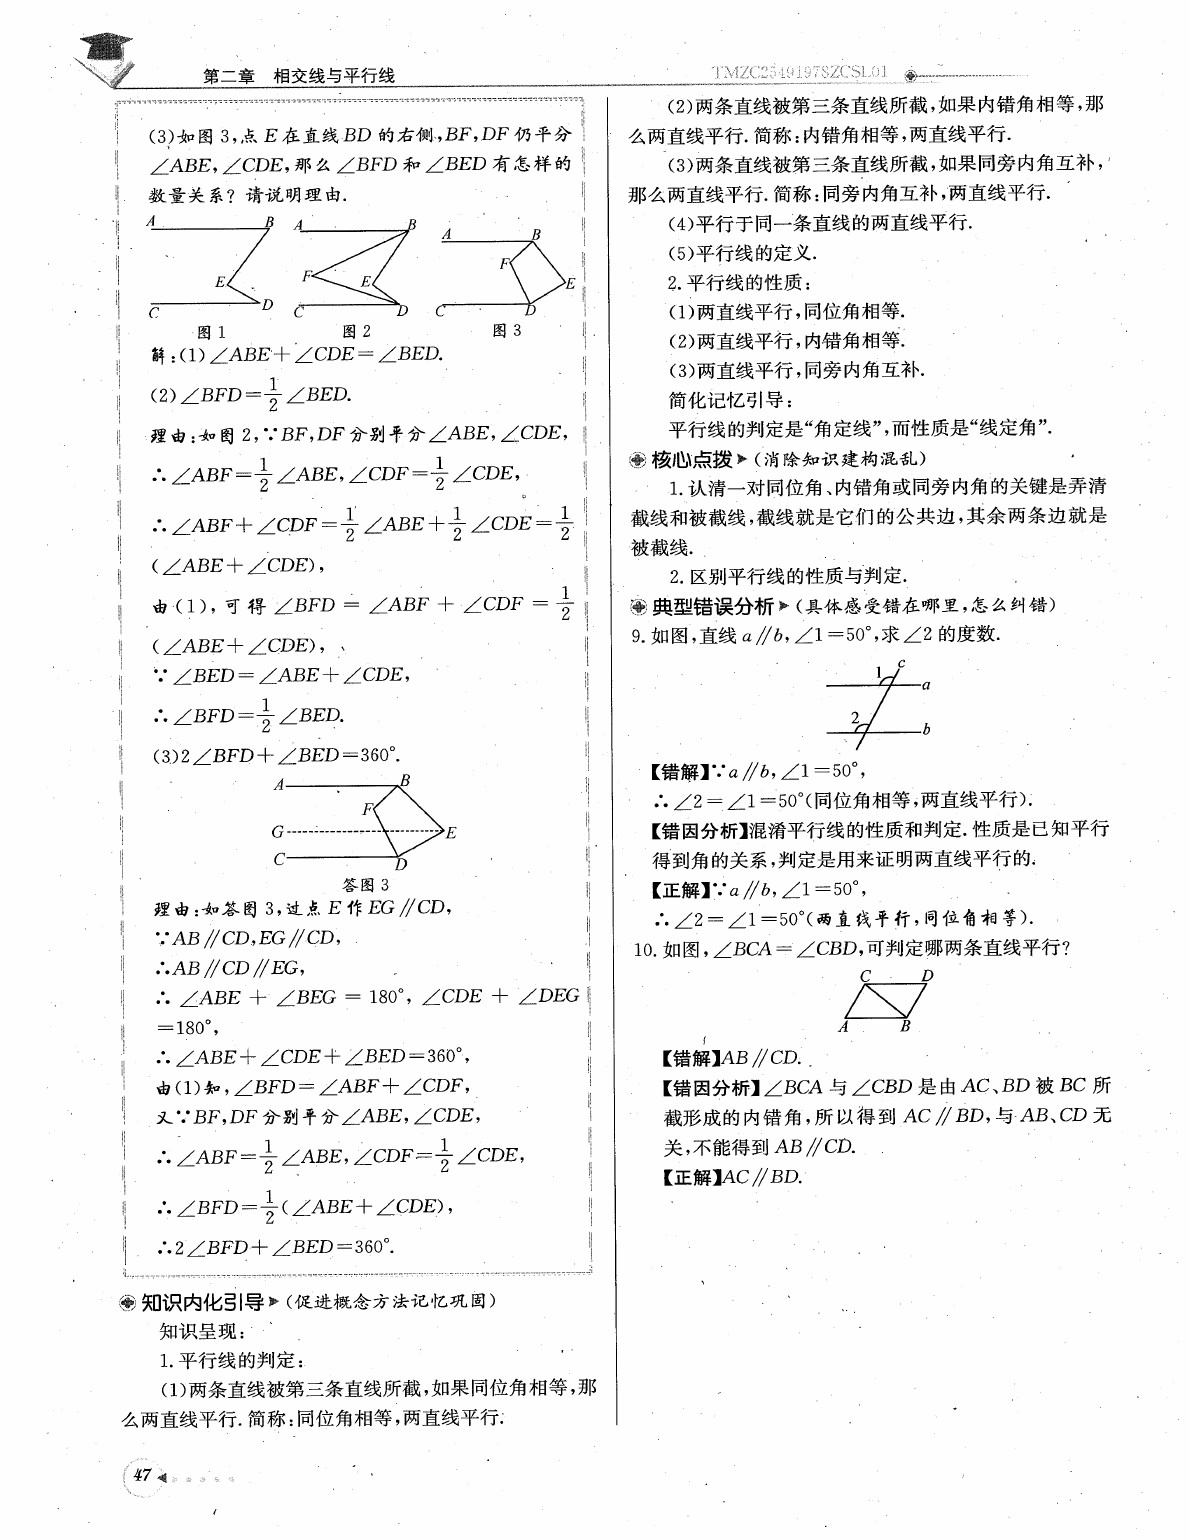 第二章 相交线与平行线
TMZC2549197SZCSL01
(3)如图 3,点 E 在直线 BD 的右侧,BF,DF 仍平分
∠ABE,∠CDE,那么∠BFD 和∠BED 有怎样的
数量关系?请说明理由.
A B E C D
A B F E C D
A B F E C D
图 1 图 2 图 3
解:(1)∠ABE+∠CDE=∠BED.
(2)∠BFD=1/2∠BED.
理由:如图 2,∵BF,DF 分别平分∠ABE,∠CDE,
∴∠ABF=1/2∠ABE,∠CDF=1/2∠CDE,
∴∠ABF+∠CDF=1/2∠ABE+1/2∠CDE=1/2
(∠ABE+∠CDE),
由(1),可得∠BFD=∠ABF+∠CDF=1/2
(∠ABE+∠CDE),
∵∠BED=∠ABE+∠CDE,
∴∠BFD=1/2∠BED.
(3)2∠BFD+∠BED=360°.
A B F G E C D
答图 3
理由:如答图 3,过点 E 作 EG∥CD,
∵AB∥CD,EG∥CD,
∴AB∥CD∥EG,
∴∠ABE+∠BEG=180°,∠CDE+∠DEG
=180°,
∴∠ABE+∠CDE+∠BED=360°,
由(1)知,∠BFD=∠ABF+∠CDF,
又∵BF,DF 分别平分∠ABE,∠CDE,
∴∠ABF=1/2∠ABE,∠CDF=1/2∠CDE,
∴∠BFD=1/2(∠ABE+∠CDE),
∴2∠BFD+∠BED=360°.
知识内化引导(促进概念方法记忆巩固)
知识呈现:
1.平行线的判定:
(1)两条直线被第三条直线所截,如果同位角相等,那
么两直线平行.简称:同位角相等,两直线平行.
(2)两条直线被第三条直线所截,如果内错角相等,那
么两直线平行.简称:内错角相等,两直线平行.
(3)两条直线被第三条直线所截,如果同旁内角互补,
那么两直线平行.简称:同旁内角互补,两直线平行.
(4)平行于同一条直线的两直线平行.
(5)平行线的定义.
2.平行线的性质:
(1)两直线平行,同位角相等.
(2)两直线平行,内错角相等.
(3)两直线平行,同旁内角互补.
简化记忆引导:
平行线的判定是“角定线”,而性质是“线定角”.
核心点拨(消除知识建构混乱)
1.认清一对同位角、内错角或同旁内角的关键是弄清
截线和被截线,截线就是它们的公共边,其余两条边就是
被截线.
2.区别平行线的性质与判定.
典型错误分析(具体感受错在哪里,怎么纠错)
9.如图,直线 a∥b,∠1=50°,求∠2 的度数.
1 c a
2 b
【错解】∵a∥b,∠1=50°,
∴∠2=∠1=50°(同位角相等,两直线平行).
【错因分析】混淆平行线的性质和判定.性质是已知平行
得到角的关系,判定是用来证明两直线平行的.
【正解】∵a∥b,∠1=50°,
∴∠2=∠1=50°(两直线平行,同位角相等).
10.如图,∠BCA=∠CBD,可判定哪两条直线平行?
C D
A B
【错解】AB∥CD.
【错因分析】∠BCA 与∠CBD 是由 AC、BD 被 BC 所
截形成的内错角,所以得到 AC∥BD,与 AB、CD 无
关,不能得到 AB∥CD.
【正解】AC∥BD.
47